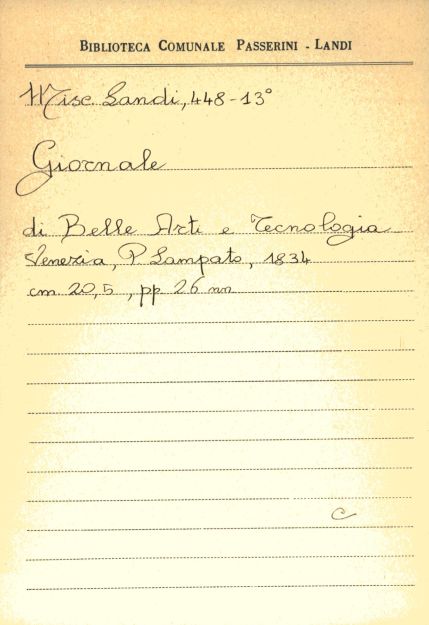 BIBLIOTECA COMUNALE PASSERINI - LANDI
Misc. Landi, 448-13°
Giornale
di Belle Arti e Tecnologia
Venezia, P. Lampato, 1834
cm 20,5, pp 26 nn
C